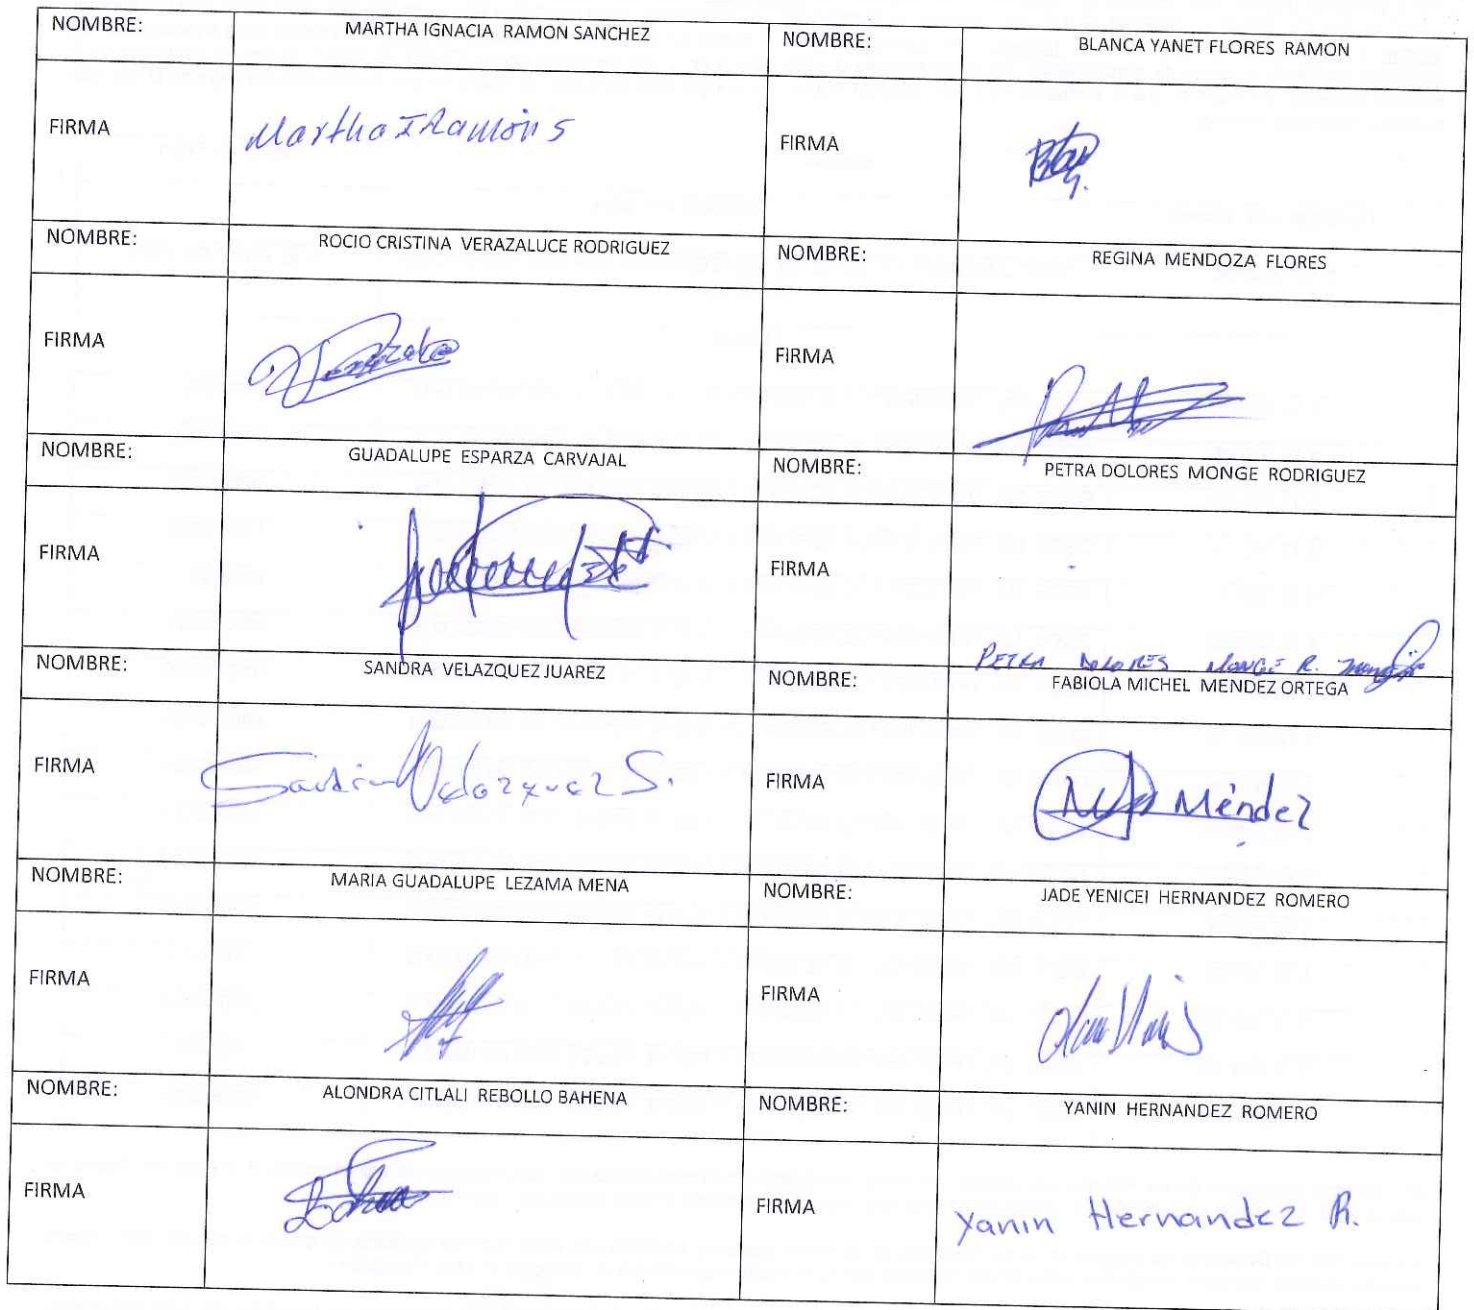 NOMBRE: MARTHA IGNACIA RAMON SANCHEZ NOMBRE: BLANCA YANET FLORES RAMON
FIRMA Martha I Ramón S FIRMA
NOMBRE: ROCIO CRISTINA VERAZALUCE RODRIGUEZ NOMBRE: REGINA MENDOZA FLORES
FIRMA FIRMA
NOMBRE: GUADALUPE ESPARZA CARVAJAL NOMBRE: PETRA DOLORES MONGE RODRIGUEZ
FIRMA FIRMA PETRA DOLORES MONGE R.
NOMBRE: SANDRA VELAZQUEZ JUAREZ NOMBRE: FABIOLA MICHEL MENDEZ ORTEGA
FIRMA Sandra Velazquez S. FIRMA Méndez
NOMBRE: MARIA GUADALUPE LEZAMA MENA NOMBRE: JADE YENICEI HERNANDEZ ROMERO
FIRMA FIRMA
NOMBRE: ALONDRA CITLALI REBOLLO BAHENA NOMBRE: YANIN HERNANDEZ ROMERO
FIRMA FIRMA Yanin Hernandez R.